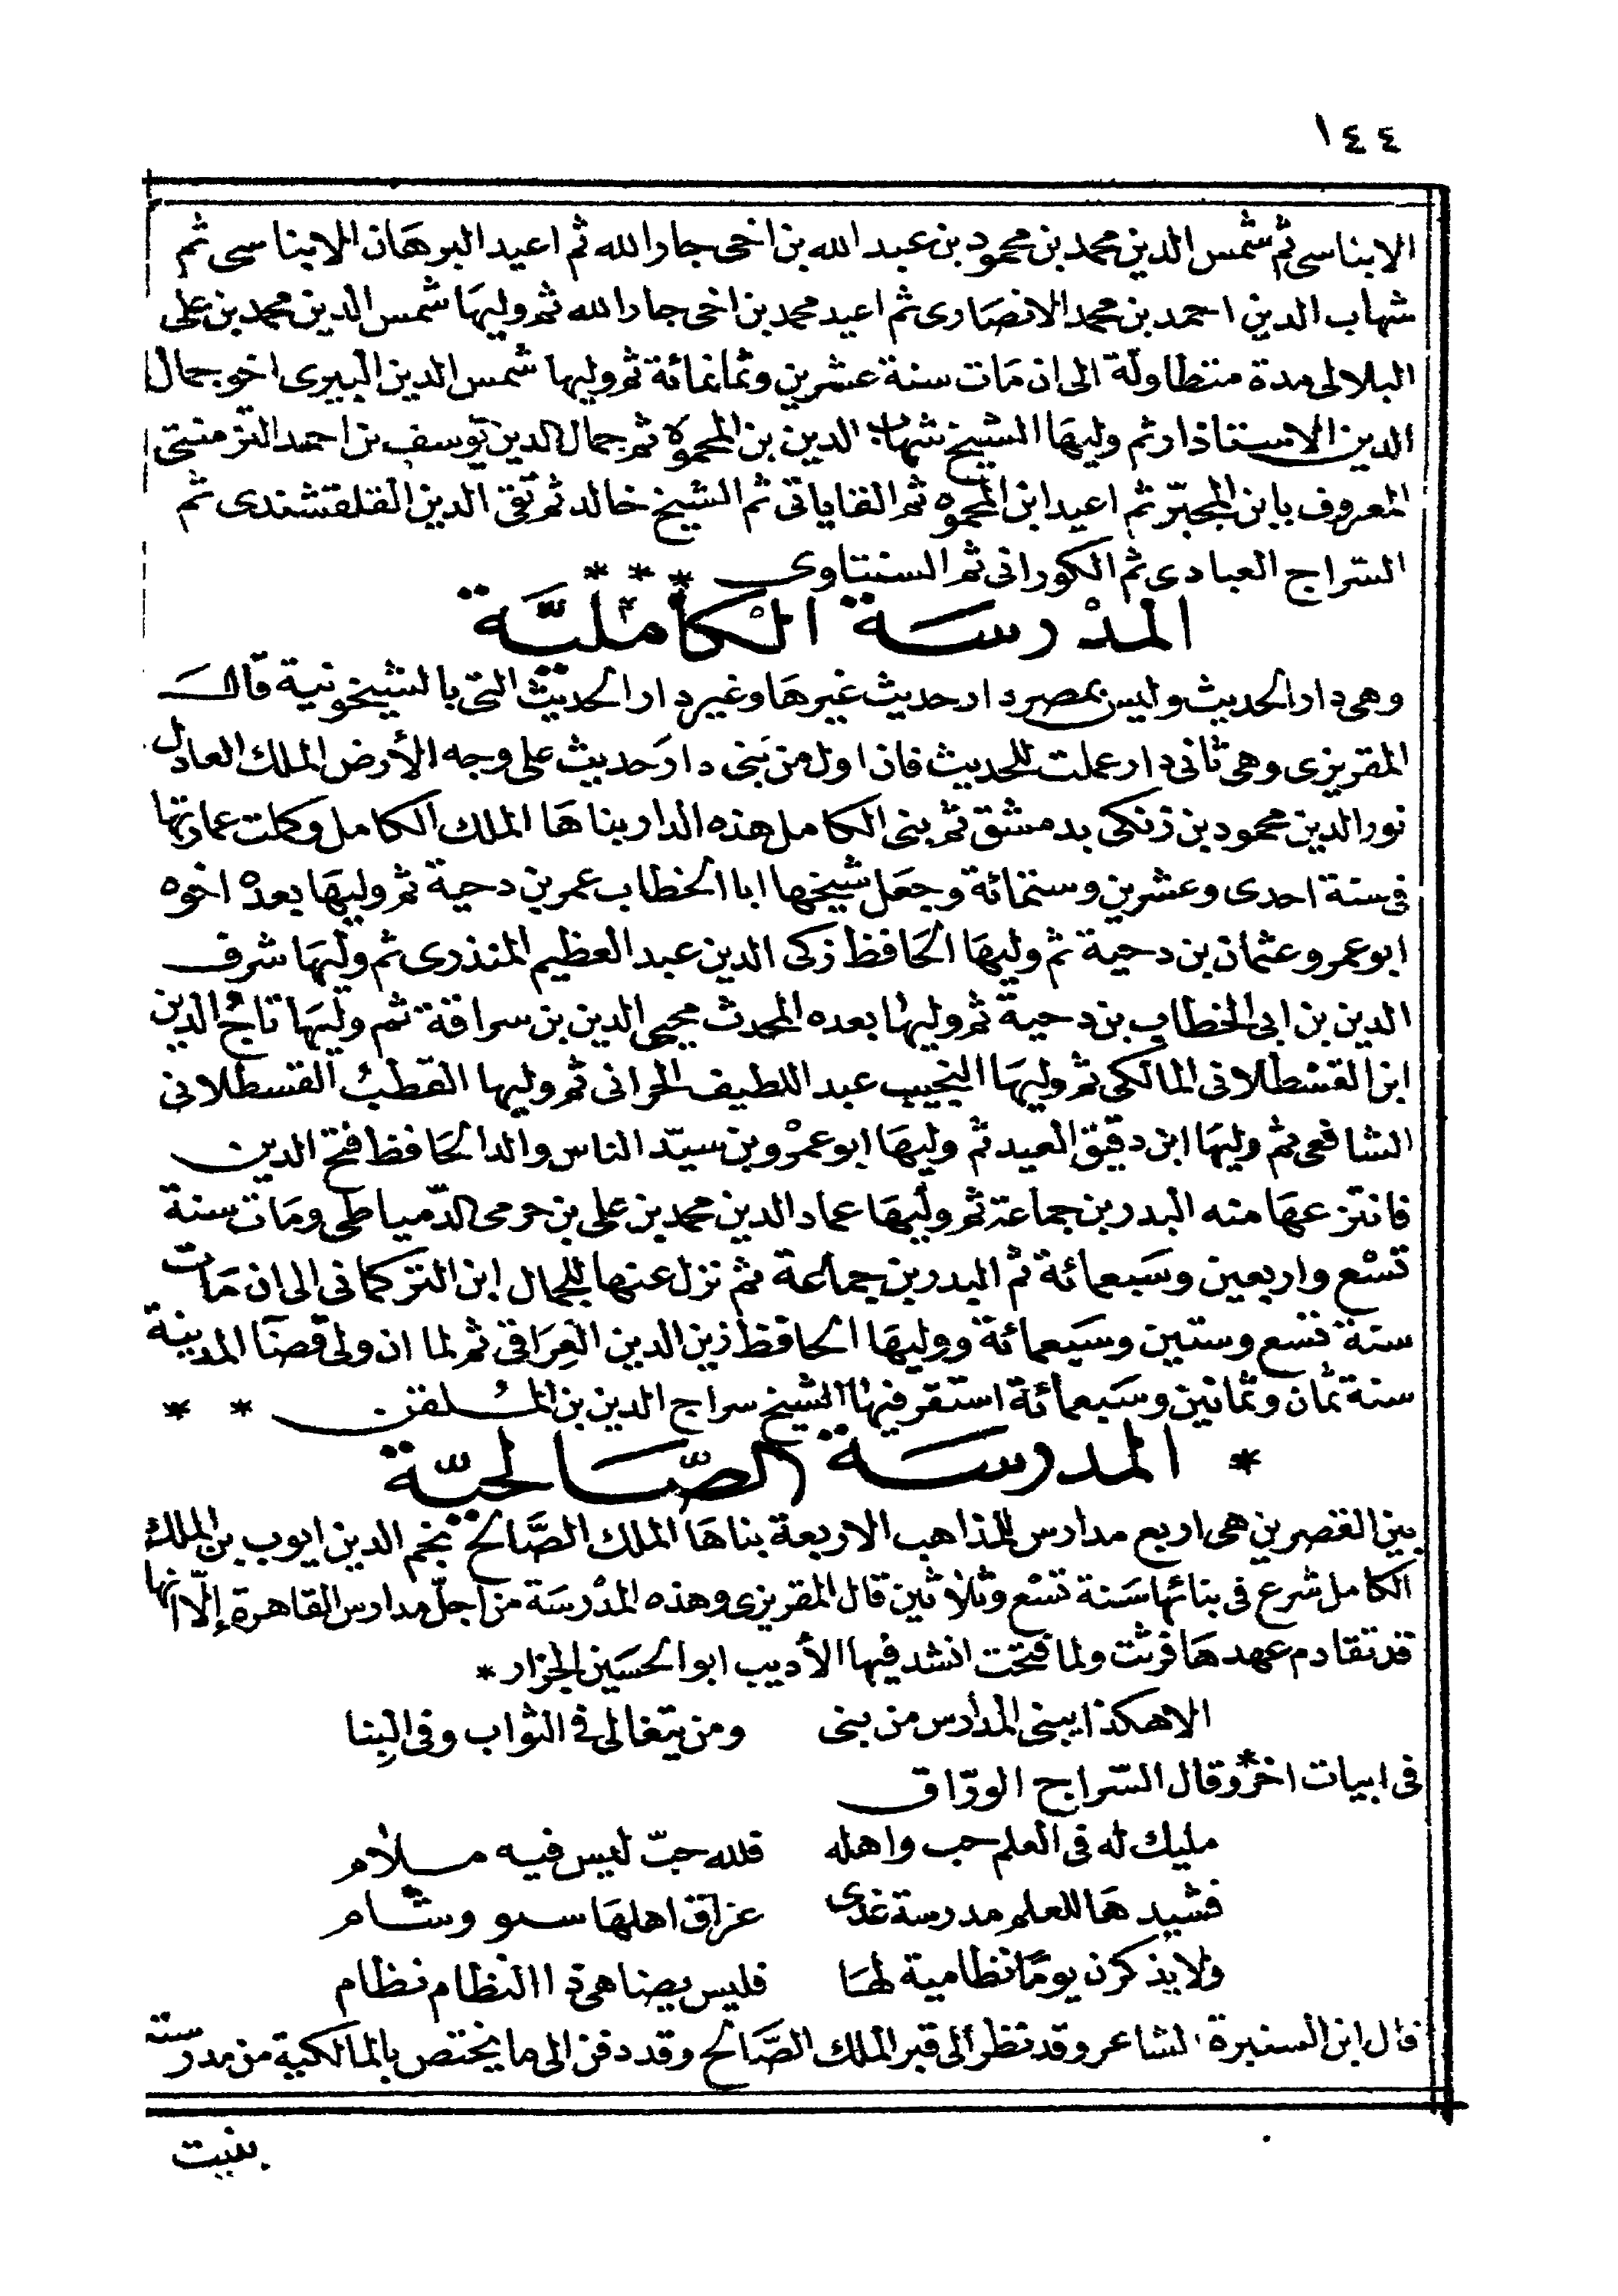 ١٤٤
الابناسى ثم شمس الدين محمد بن محمود بن عبد الله بن اخى جار الله ثم اعيد البرهان الابناسى ثم
شهاب الدين احمد بن محمد الانصارى ثم اعيد محمد بن اخى جار الله ثم وليها شمس الدين محمد بن على
البلالى مدة متطاولة الى ان مات سنة عشرين وثمانمائة ثم وليها شمس الدين البيرى اخو جمال
الدين الاستاذار ثم وليها الشيخ شهاب الدين بن المحمرة ثم جمال الدين يوسف بن احمد التزمنتى
المعروف بابن المجبّر ثم اعيد ابن المحمره ثم القاياتى ثم الشيخ خالد ثم تقى الدين القلقشندى ثم
السراج العبادى ثم الكورانى ثم السنتاوى * * *
المدْرسَة الكَامليَّة
وهى دار الحديث وليس بمصر دار حديث غيرها وغير دار الحديث التى بالشيخونية قال
المقريزى وهى ثانى دار عملت للحديث فان اول من بَنى دارَ حديث على وجه الأرض الملك العادل
نور الدين محمود بن زنكى بدمشق ثم بنى الكامل هذه الدار بناها الملك الكامل وكملت عمارتها
فى سنة احدى وعشرين وستمائة وجعَل شيخها ابا الخطاب عمر بن دحية ثم وليهَا بعدْه اخوه
ابو عمرو عثمان بن دحية ثم وليهَا الحَافظ زكى الدين عبد العظيم المنذرى ثم وليهَا شرف
الدين بن ابى الخطاب بن دحية ثم وليها بعده المحدث محيى الدين بن سراقة ثم وليهَا تاجُ الدين
ابن القسْطلانى المالكى ثم وليهَا النجيب عبد اللطيف الحرانى ثم وليها القطبُ القسطلانى
الشافعى ثم وليهَا ابن دقيق العيد ثم وليهَا ابو عمْرو بن سيّد الناس والد الحَافظ فتح الدين
فانتزعهَا منه البدر بن جماعة ثم وليهَا عماد الدين محمد بن على بن حرمى الدّمياطى ومَات سنة
تسْع واربعين وسَبعمائة ثم البدر بن جماعة ثم نزل عنها للجمال ابن التركمانى الى ان مَات
سنة تسع وستين وسَبعمائة ووليهَا الحافظ زين الدين العِرَاقى ثم لما ان ولى قضَا المدينة
سنة ثمان وثمانين وسَبعمائة استقر فيها الشيخ سراج الدين بن المُلقن * *
* المدرسَة الصَّالحيّة
بين القصرين هى اربع مدارس للمذاهب الاربعة بناهَا الملك الصَّالح نجم الدين ايوب بن الملك
الكامل شرع فى بنائها سَنة تسْع وثلاثين قال المقريزى وهذه المدْرسَة من اجلّ مدارس القاهرة إلّا انها
قد تقادم عهدهَا فرثت ولما فتحت انشد فيها الأديب ابو الحسَين الجزار *
الا هكذا يبنى المدَارس من بنى ومن يتغالى فى الثواب وفى البِنا
فى ابيات اخَر * وقال السّراج الورّاق
مليك له فى العلم حب واهله فلله حبّ ليس فيه ملام
فشيدهَا للعلم مدرسة غدى عراق اهلهَا سمو وشام
ولا يذكرن يومًا نظامية لهَا فليس يضاهى ذا النظام نظام
قال ابن السنيرة الشاعر وقد نظر الى قبر الملك الصَّالح وقد دفن الى ما يختص بالمالكية من مدرسته
بنيت